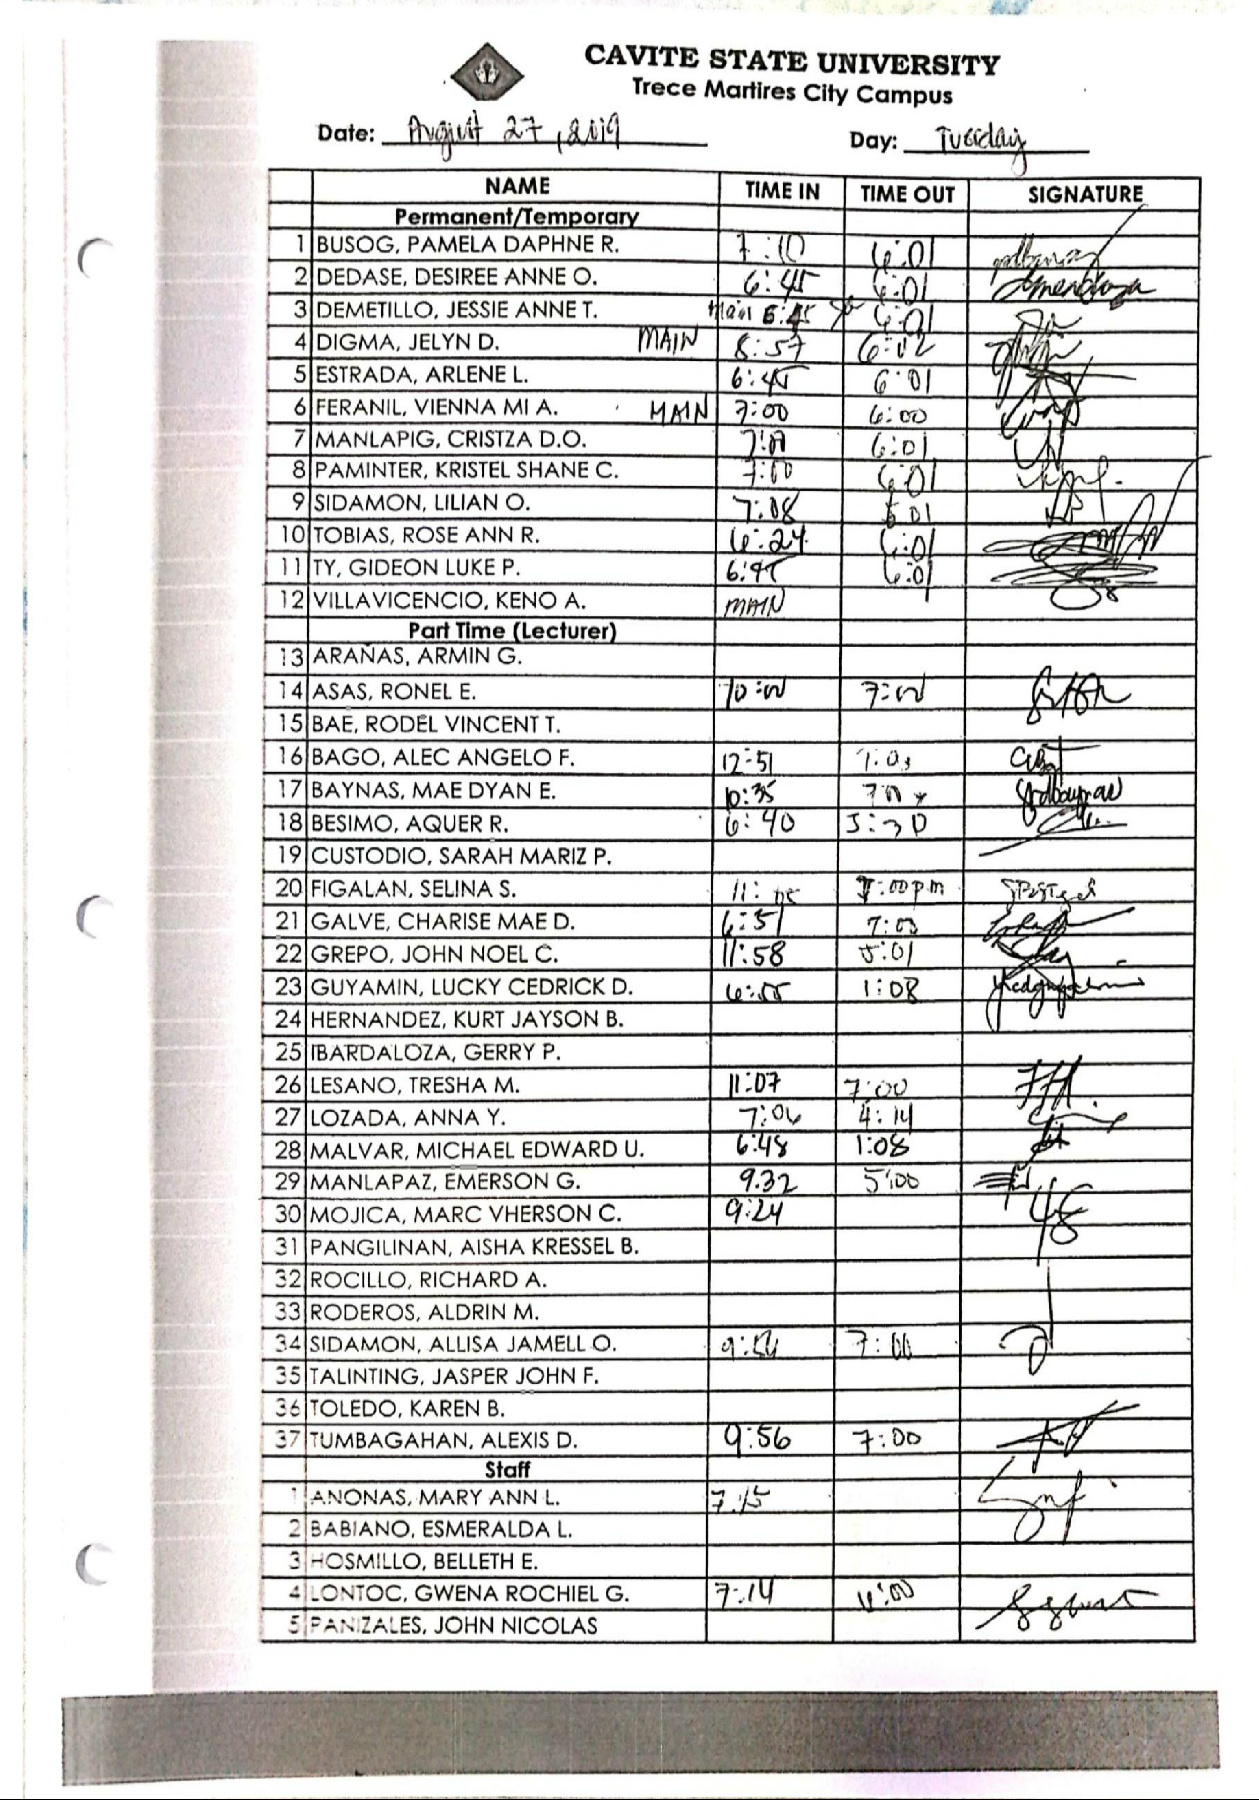 CAVITE STATE UNIVERSITY
Trece Martires City Campus
Date: August 27, 2019 Day: Tuesday
NAME TIME IN TIME OUT SIGNATURE
Permanent/Temporary
1 BUSOG, PAMELA DAPHNE R. 7:10 6:01
2 DEDASE, DESIREE ANNE O. 6:45 6:01
3 DEMETILLO, JESSIE ANNE T. Main 6:45 6:01
4 DIGMA, JELYN D. MAIN 8:57 6:02
5 ESTRADA, ARLENE L. 6:45 6:01
6 FERANIL, VIENNA MI A. MAIN 7:00 6:00
7 MANLAPIG, CRISTZA D.O. 6:01
8 PAMINTER, KRISTEL SHANE C. 7:00 6:01
9 SIDAMON, LILIAN O. 7:08 6:01
10 TOBIAS, ROSE ANN R. 6:24 6:01
11 TY, GIDEON LUKE P. 6:45 6:01
12 VILLAVICENCIO, KENO A. MAIN
Part Time (Lecturer)
13 ARAÑAS, ARMIN G.
14 ASAS, RONEL E. 10:00 7:00
15 BAE, RODEL VINCENT T.
16 BAGO, ALEC ANGELO F. 12:51 7:03
17 BAYNAS, MAE DYAN E. 10:35
18 BESIMO, AQUER R. 6:40 5:30
19 CUSTODIO, SARAH MARIZ P.
20 FIGALAN, SELINA S. 7:00pm
21 GALVE, CHARISE MAE D. 6:51 7:03
22 GREPO, JOHN NOEL C. 11:58 5:01
23 GUYAMIN, LUCKY CEDRICK D. 6:55 1:08
24 HERNANDEZ, KURT JAYSON B.
25 IBARDALOZA, GERRY P.
26 LESANO, TRESHA M. 11:07 7:00
27 LOZADA, ANNA Y. 7:06 4:14
28 MALVAR, MICHAEL EDWARD U. 6:48 1:08
29 MANLAPAZ, EMERSON G. 9.32 5:00
30 MOJICA, MARC VHERSON C. 9:24
31 PANGILINAN, AISHA KRESSEL B.
32 ROCILLO, RICHARD A.
33 RODEROS, ALDRIN M.
34 SIDAMON, ALLISA JAMELL O. 7:00
35 TALINTING, JASPER JOHN F.
36 TOLEDO, KAREN B.
37 TUMBAGAHAN, ALEXIS D. 9:56 7:00
Staff
1 ANONAS, MARY ANN L. 7:15
2 BABIANO, ESMERALDA L.
3 HOSMILLO, BELLETH E.
4 LONTOC, GWENA ROCHIEL G. 7:14 6:00
5 PANIZALES, JOHN NICOLAS